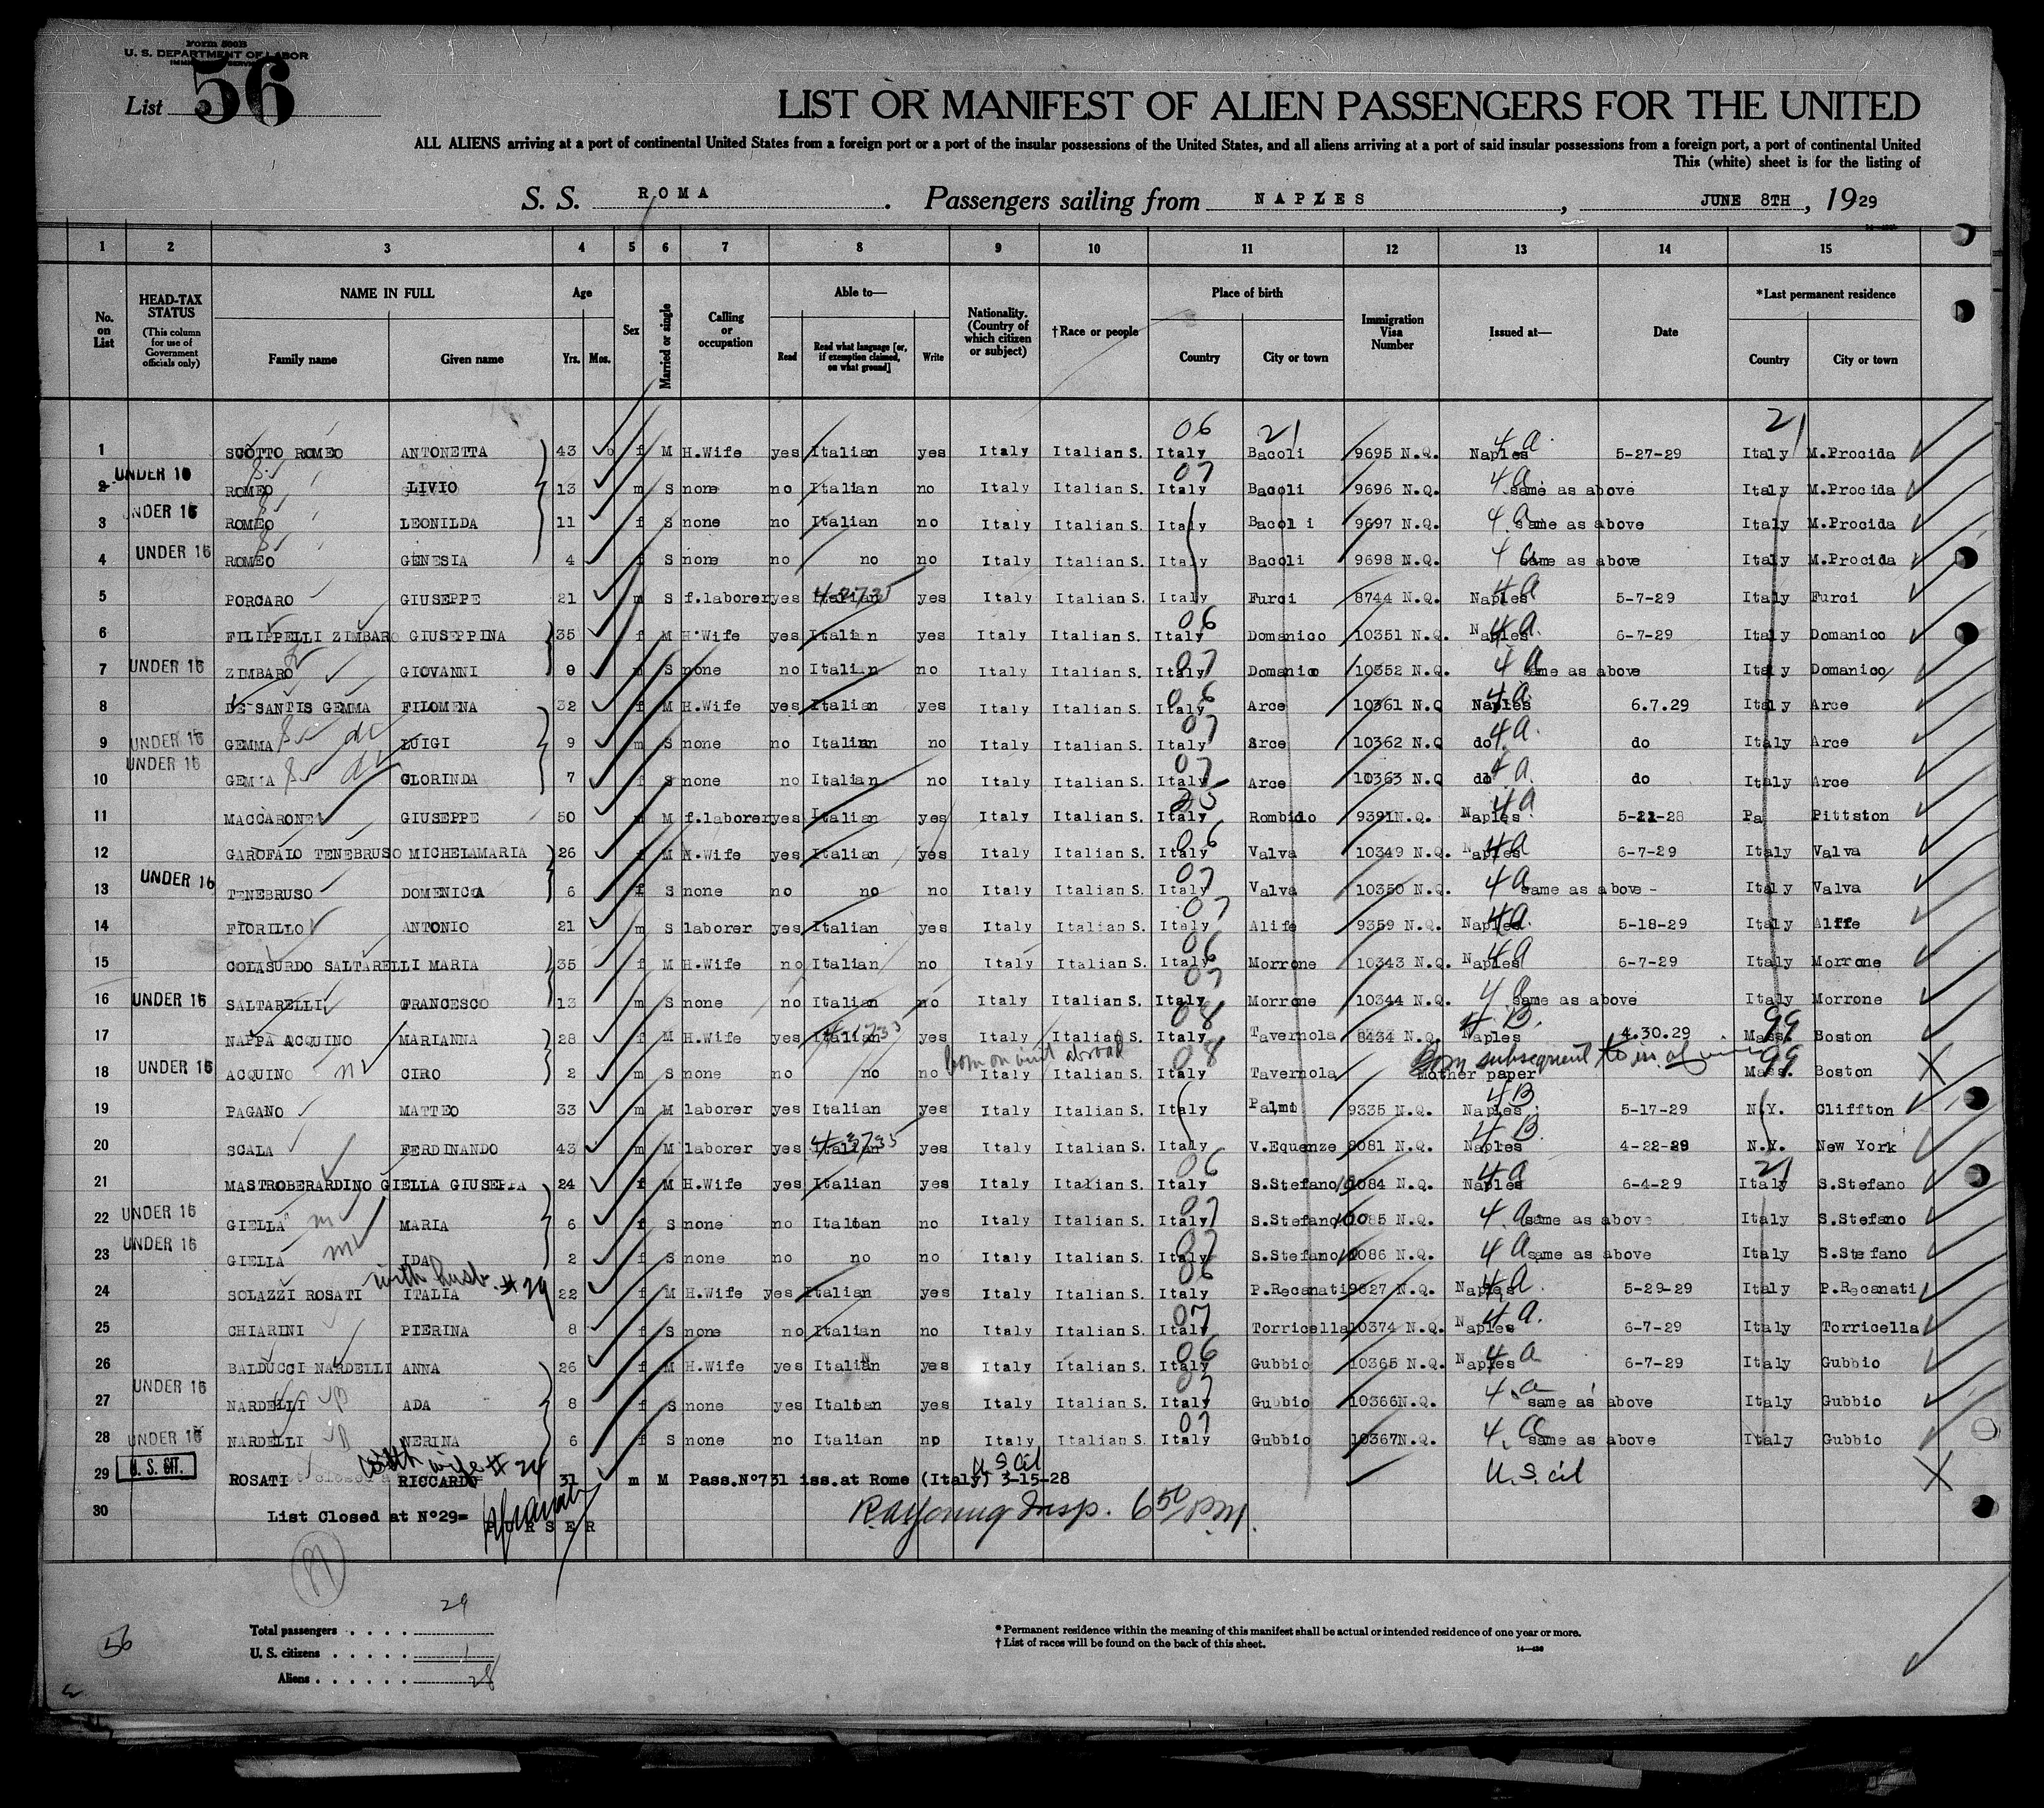 Form 500B
U. S. DEPARTMENT OF LABOR
List 56
LIST OR MANIFEST OF ALIEN PASSENGERS FOR THE UNITED
ALL ALIENS arriving at a port of continental United States from a foreign port or a port of the insular possessions of the United States, and all aliens arriving at a port of said insular possessions from a foreign port, a port of continental United
This (white) sheet is for the listing of
S. S. ROMA . Passengers sailing from NAPLES , JUNE 8TH , 1929
1 2 3 4 5 6 7 8 9 10 11 12 13 14 15
No. on List HEAD-TAX STATUS (This column for use of Government officials only) NAME IN FULL Family name Given name Age Yrs. Mos. Sex Married or single Calling or occupation Able to— Read Read what language [or, if exemption claimed, on what ground] Write Nationality. (Country of which citizen or subject) †Race or people Place of birth Country City or town Immigration Visa Number Issued at— Date *Last permanent residence Country City or town
06 21 21
1 SCOTTO ROMEO ANTONETTA 43 f M H.Wife yes Italian yes Italy Italian S. Italy Bacoli 9695 N.Q. Naples 4a 5-27-29 Italy M.Procida
2 UNDER 16 ROMEO LIVIO 13 m S none no Italian no Italy Italian S. Italy 07 Bacoli 9696 N.Q. 4a same as above Italy M.Procida
3 UNDER 16 ROMEO LEONILDA 11 f S none no Italian no Italy Italian S. Italy Bacoli 9697 N.Q. 4a same as above Italy M.Procida
4 UNDER 16 ROMEO GENESIA 4 f S none no no no Italy Italian S. Italy Bacoli 9698 N.Q. 4a same as above Italy M.Procida
5 PORCARO GIUSEPPE 21 m S f.laborer yes Italian yes Italy Italian S. Italy Furci 8744 N.Q. Naples 4a 5-7-29 Italy Furci
6 FILIPPELLI ZIMBARO GIUSEPPINA 35 f M H.Wife yes Italian yes Italy Italian S. Italy 06 Domanico 10351 N.Q. Naples 4a 6-7-29 Italy Domanico
7 UNDER 16 ZIMBARO GIOVANNI 9 m S none no Italian no Italy Italian S. Italy 07 Domanico 10352 N.Q. 4a same as above Italy Domanico
8 DE SANTIS GEMMA FILOMENA 32 f M H.Wife yes Italian yes Italy Italian S. Italy 06 Arce 10361 N.Q Naples 4a 6.7.29 Italy Arce
9 UNDER 16 GEMMA LUIGI 9 m S none no Italian no Italy Italian S. Italy 07 Arce 10362 N.Q do 4a do Italy Arce
10 UNDER 16 GEMMA CLORINDA 7 f S none no Italian no Italy Italian S. Italy 07 Arce 10363 N.Q do 4a do Italy Arce
11 MACCARONE GIUSEPPE 50 m M f.laborer yes Italian yes Italy Italian S. Italy Rombiolo 9391 N.Q. Naples 4a 5-21-28 Pa Pittston
12 GAROFALO TENEBRUSO MICHELAMARIA 26 f M H.Wife yes Italian yes Italy Italian S. Italy 06 Valva 10349 N.Q. Naples 4a 6-7-29 Italy Valva
13 UNDER 16 TENEBRUSO DOMENICA 6 f S none no no no Italy Italian S. Italy 07 Valva 10350 N.Q. 4a same as above - Italy Valva
14 FIORILLO ANTONIO 21 m S laborer yes Italian yes Italy Italian S. Italy 07 Alife 9359 N.Q. Naples 4a 5-18-29 Italy Alife
15 COLASURDO SALTARELLI MARIA 35 f M H.Wife no Italian no Italy Italian S. Italy 06 Morrone 10343 N.Q. Naples 4a 6-7-29 Italy Morrone
16 UNDER 16 SALTARELLI FRANCESCO 13 m S none no Italian no Italy Italian S. Italy 07 Morrone 10344 N.Q. 4a same as above Italy Morrone
17 NAPPA ACQUINO MARIANNA 28 f M H.Wife yes Italian yes Italy Italian S. Italy 08 Tavernola 8434 N.Q. Naples 4B. 4.30.29 Mass. 99 Boston
18 UNDER 16 ACQUINO CIRO 2 m S none no no no born on visit abroad Italy Italian S. Italy 08 Tavernola Born subsequent to iss. of mother paper Mass. 99 Boston
19 PAGANO MATTEO 33 m M laborer yes Italian yes Italy Italian S. Italy Palmi 9335 N.Q. Naples 4B 5-17-29 N.Y. Cliffton
20 SCALA FERDINANDO 43 m M laborer yes Italian yes Italy Italian S. Italy V.Equenze 8081 N.Q. Naples 4B. 4-22-29 N.Y. New York
21 MASTROBERARDINO GIELLA GIUSEPPA 24 f M H.Wife yes Italian yes Italy Italian S. Italy 06 S.Stefano 10084 N.Q. Naples 4a 6-4-29 Italy 21 S.Stefano
22 UNDER 16 GIELLA MARIA 6 f S none no Italian no Italy Italian S. Italy 07 S.Stefano 10085 N.Q. 4a same as above Italy S.Stefano
23 UNDER 16 GIELLA IDA 2 f S none no no no Italy Italian S. Italy 07 S.Stefano 10086 N.Q. 4a same as above Italy S.Stefano
with husb. #29
24 SOLAZZI ROSATI ITALIA 22 f M H.Wife yes Italian yes Italy Italian S. Italy 06 P.Recanati 9827 N.Q. Naples 4a. 5-29-29 Italy P.Recanati
25 CHIARINI PIERINA 8 f S none no Italian no Italy Italian S. Italy 07 Torricella 10374 N.Q. Naples 4a. 6-7-29 Italy Torricella
26 BALDUCCI NARDELLI ANNA 26 f M H.Wife yes Italian yes Italy Italian S. Italy 06 Gubbio 10365 N.Q. Naples 4a 6-7-29 Italy Gubbio
27 UNDER 16 NARDELLI ADA 8 f S none yes Italian yes Italy Italian S. Italy 07 Gubbio 10366N.Q. 4a same as above Italy Gubbio
28 UNDER 16 NARDELLI NERINA 6 f S none no Italian no Italy Italian S. Italy 07 Gubbio 10367N.Q. 4a same as above Italy Gubbio
with wife #24
29 U. S. CIT. ROSATI RICCARDO 31 m M Pass.N°731 iss.at Rome (Italy) 3-15-28 U.S cit U.S. cit
30 List Closed at N°29= PURSER R.A.Young Insp. 6 50 P.M.
Total passengers . . . . 29
U. S. citizens . . . . . 1
Aliens . . . . . . 28
56
* Permanent residence within the meaning of this manifest shall be actual or intended residence of one year or more.
† List of races will be found on the back of this sheet.